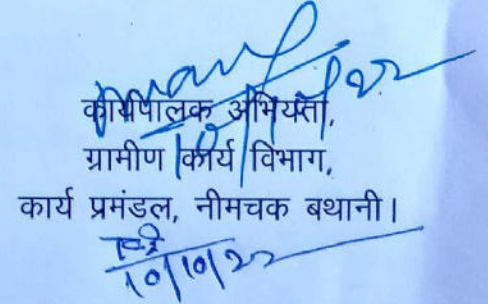 कार्यपालक अभियंता,
ग्रामीण कार्य विभाग,
कार्य प्रमंडल, नीमचक बथानी।
10/10/22